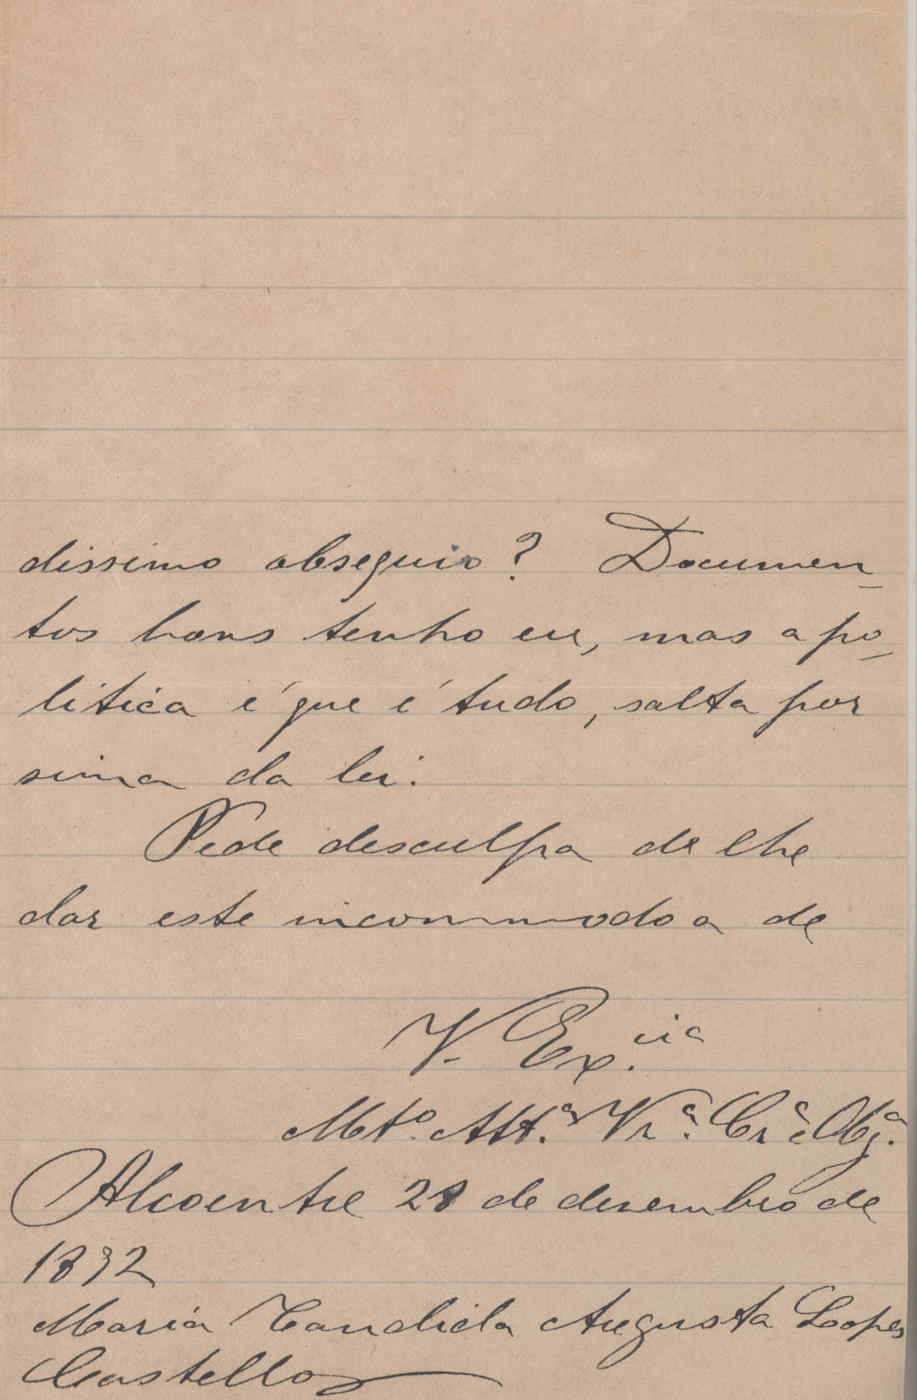 dissimo obsequio? Documen_
tos bons tenho eu, mas a po_
litica é que é tudo, salta por
sima da lei.
Pede desculpa de lhe
dar este incommodo a de
V. Ex.cia
Mt.º Att.ª Vr.ª Cr.ª e Obg.ª
Alcoentre 28 de desembro de
1892
Maria Candida Augusta Loopes
Castello